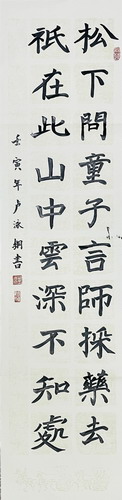 松下問童子言師採藥去
祇在此山中雲深不知處
壬寅年卢泳翔書